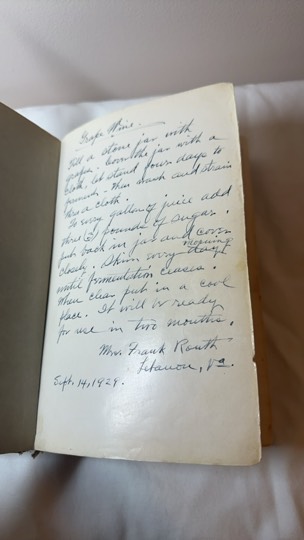 Grape Wine.
Fill a stone jar with
grapes. Cover the jar with a
cloth, let stand four days to
ferment. Then mash and strain
thru a cloth.
To every gallon of juice add
three (3) pounds of sugar.
put back in jar and cover
closely. Skim every morning
until fermentation ceases.
When clear put in a cool
place. It will be ready
for use in two months.
Mrs. Frank Routh
Lebanon, Va.
Sept. 14, 1929.